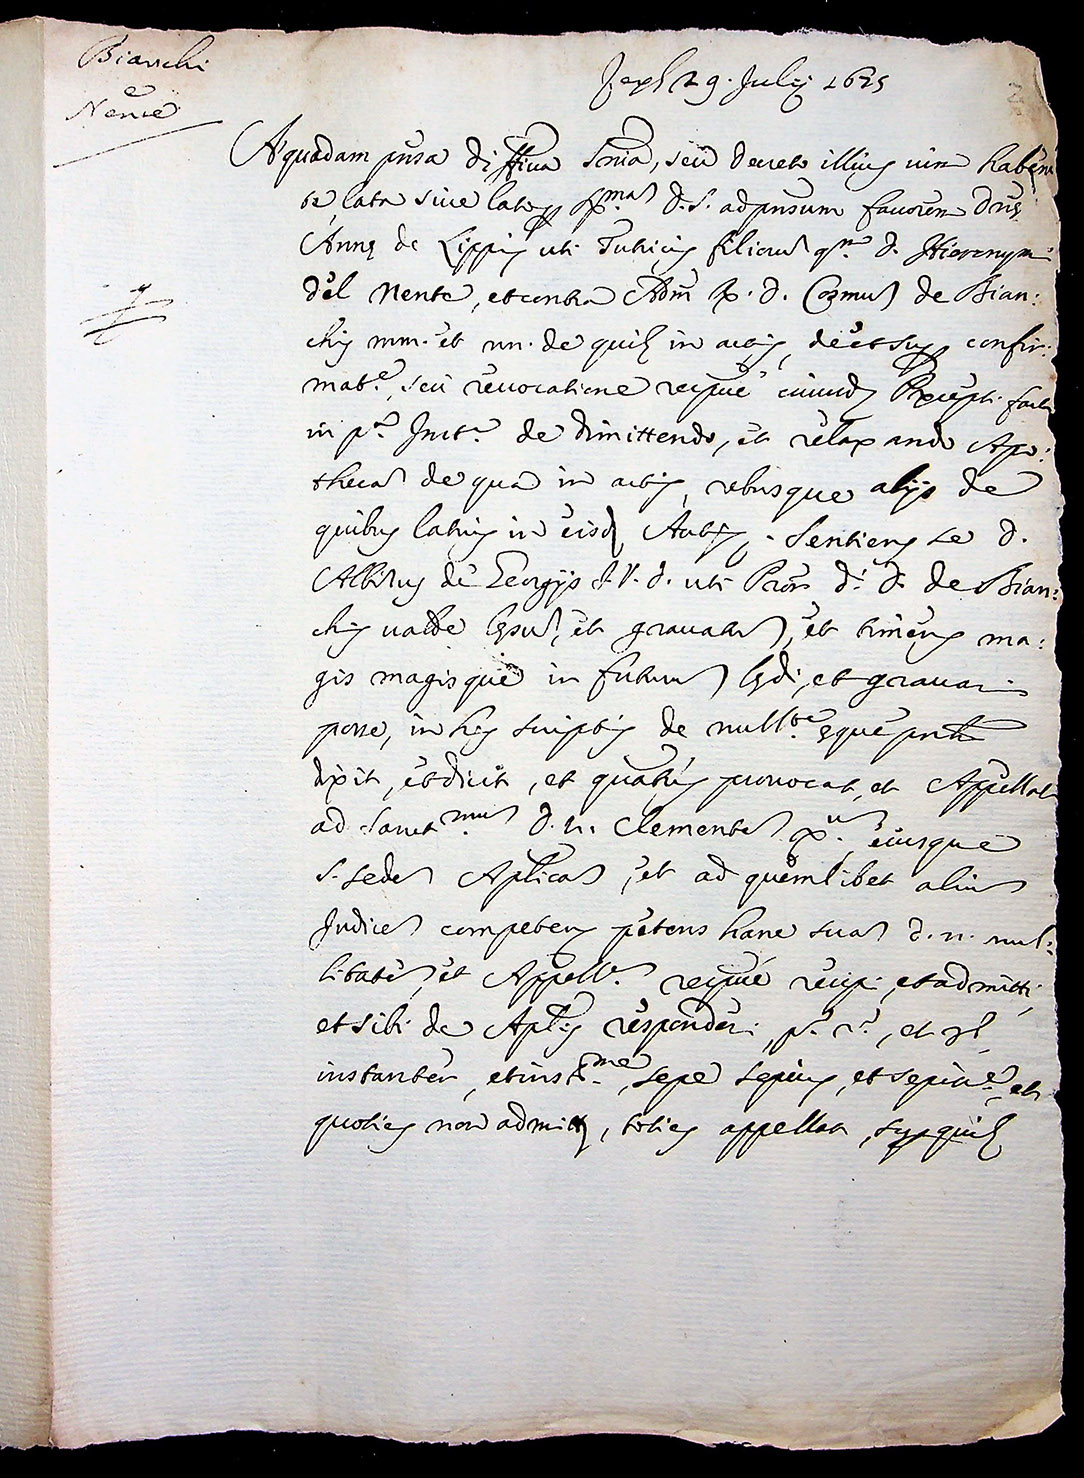 Bianchi
e
Nence
29. Julij 1675
A quadam pnsa diffiua snia, seu decreto illius uim haben
te lata siue lato D. S. ad pnsum fauorem Dnę
Annę de Lippis uti Tutricis filior qm. D. Hieronym
del Nente, et contra Adm R. D. Cosmum de Bian:
chis mm. et nn. de quib in actis, deet sup confir:
mate., seu reuocatione respue eiusd Pręcepti facti
in pa. Insta. de dimittendo, et relaxando Apo:
thecam de qua in actis, rebusque alijs de
quibus latius in eisd Actis. Sentiens se D.
Albitus de Georgijs J. V. D. uti Procr di. D. de Bian:
chis ualde lęsum, et grauatum, et timens ma:
gis magisque in futurum lędi, et grauari
posse, in his scriptis de nullte. ęque prnlr
dixit, et dicit, et quatis prouocat, et Appellat
ad Sanctmum D. N. Clementem X., eiusque
S. Sedem Aplicam, et ad quemlibet alium
Judicem competens petens hanc suam D. N. nul:
litatem, et Appellm. respue recipi, et admitti
et sibi de Aplis responderi, po. 2o., et 3o.
instanter, et instme., sepe sepius, et sepissę., et
quoties non admitt, toties appellat, sup quib